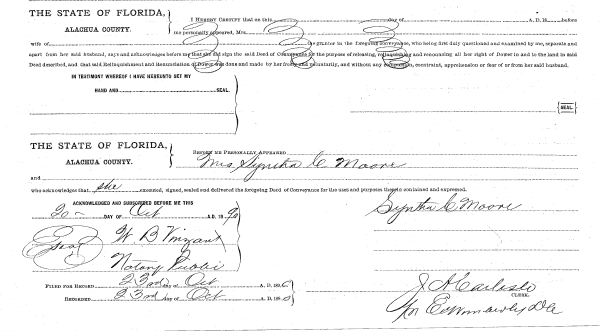 THE STATE OF FLORIDA,
ALACHUA COUNTY.
I HEREBY CERTIFY that on this day of A. D. 18 before
me personally appeared, Mrs.
wife of the grantor in the foregoing conveyance, who being first duly questioned and examined by me, separate and
apart from her said husband, says and acknowledges before me that she did sign the said Deed of Conveyance for the purpose of releasing, relinquishing and renouncing all her right of Dower in and to the land in said
Deed described, and that said Relinquishment and Renunciation of Dower was done and made by her freely and voluntarily, and without any compulsion, constraint, apprehension or fear of or from her said husband.
IN TESTIMONY WHEREOF I HAVE HEREUNTO SET MY
HAND AND SEAL.
SEAL.
THE STATE OF FLORIDA,
ALACHUA COUNTY.
BEFORE ME PERSONALLY APPEARED
Mrs Syntha C Moore
and
who acknowledges that she executed, signed, sealed and delivered the foregoing Deed of Conveyance for the uses and purposes therein contained and expressed.
ACKNOWLEDGED AND SUBSCRIBED BEFORE ME THIS
20 DAY OF Oct A. D. 1890
Syntha C Moore
Seal
W. B. Vinzant
Notary Public
FILED FOR RECORD 23rd Oct A. D. 18
RECORDED 23rd day of Oct A. D. 18
J A Carlisle
CLERK.